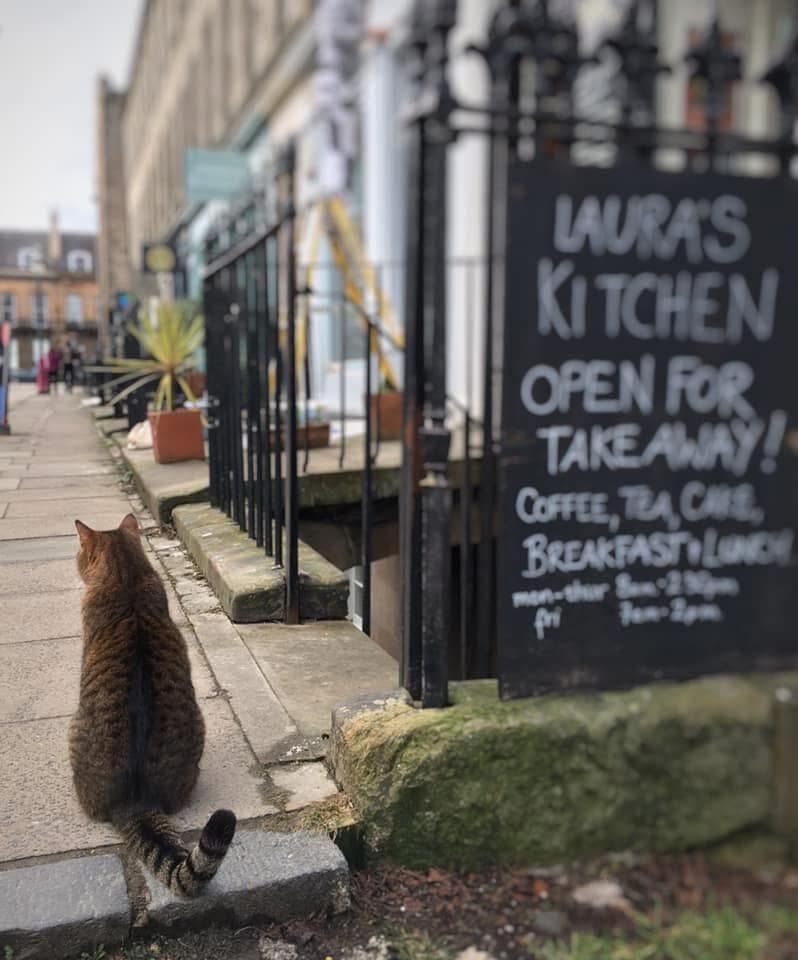 LAURA'S
KITCHEN
OPEN FOR
TAKEAWAY!
COFFEE, TEA, CAKE,
BREAKFAST & LUNCH!
mon-thur 8am-2:30pm
fri 7am-2pm